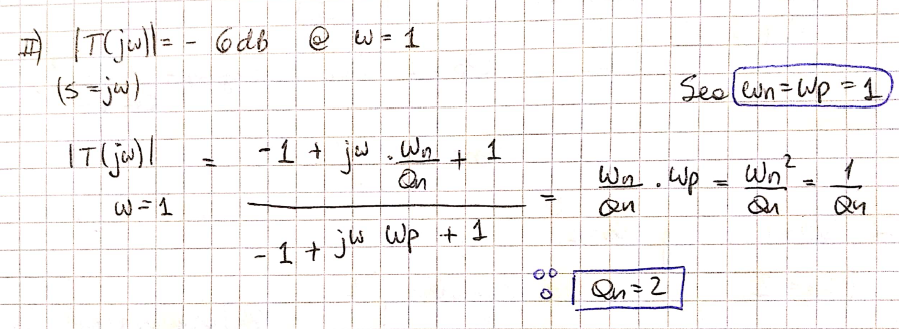 II) |T(jω)| = - 6db @ ω = 1
(s = jω)
Sea ωn = ωp = 1
|T(jω)| ω=1 = (-1 + jω . ωn/Qn + 1) / (-1 + jω ωp + 1) = ωn/Qn . ωp = ωn²/Qn = 1/Qn
∴ Qn = 2